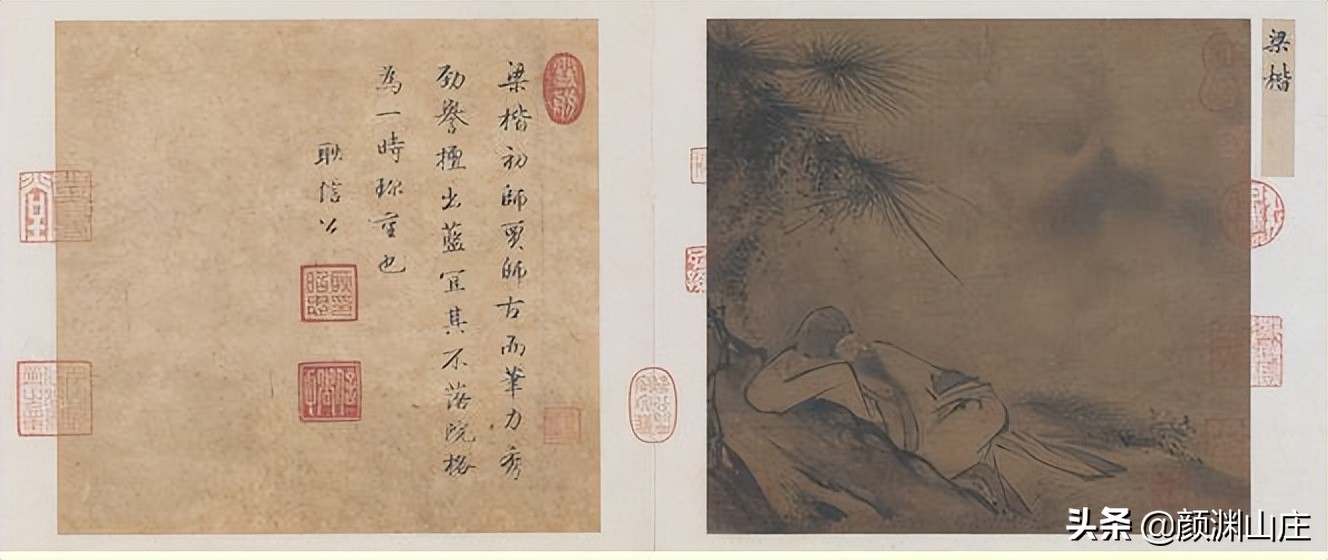 梁楷
梁楷初師賈師古而筆力秀
勁譽擅出藍宜其不落院格
為一時珎重也
耿信公
头条 @颜渊山庄